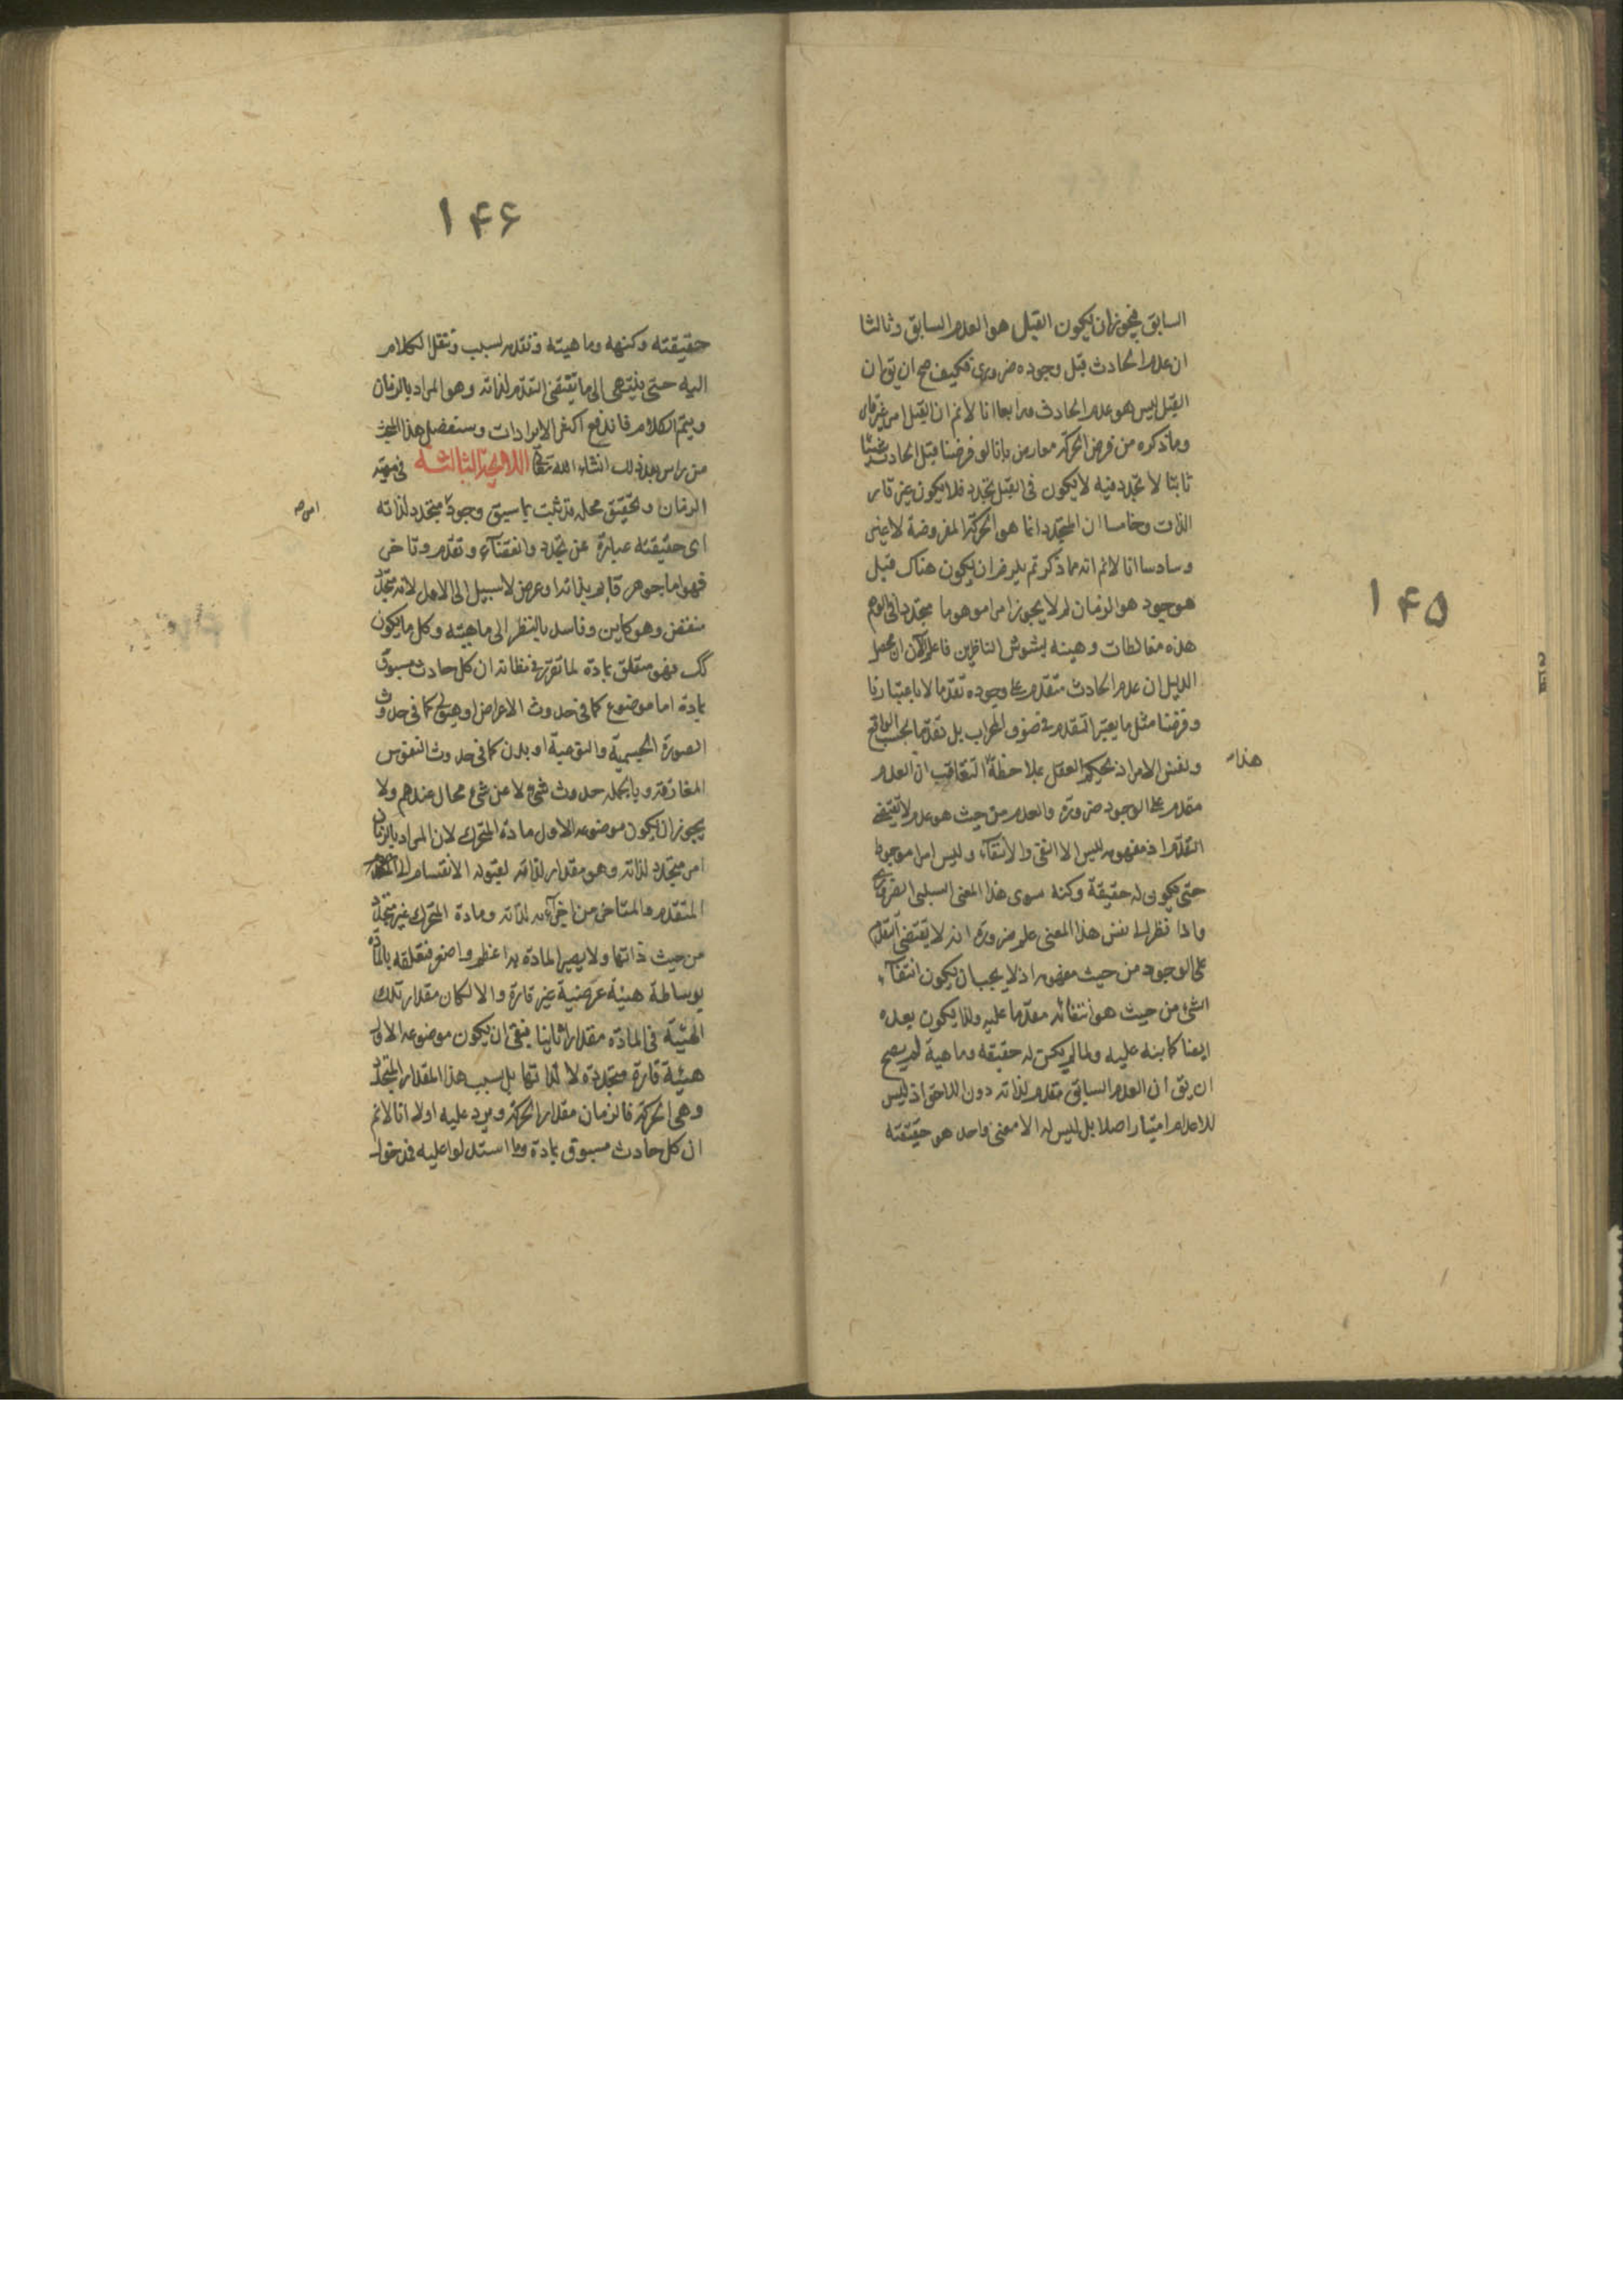 ١٤٥
السابق فيجوز ان يكون القبل هو العدم السابق وثالثا
ان عدم الحادث قبل وجوده ضروري فكيف صح ان يق ان
القبل ليس هو عدم الحادث ورابعا انا لانم ان القبل امر غير قار
وما ذكره من فرض الحركة معارض بانا لو فرضنا قبل الحادث شيئا
ثابتا لا تجدد فيه لا يكون في القبل تجدد فلا يكون غير قار
الذات وخامسا ان المتجدد انما هو الحركة المفروضة لا غير
وسادسا انا لانم انه مما ذكرتم يلزم ان يكون هناك قبل
موجود هو الزمان لم لا يجوز امرا موهوما متجددا في الوهم
هذه مغالطات وهينه يشوش الناظرين فاعلم ان محصل
الدليل ان عدم الحادث متقدم على وجوده تقدما لا باعتبارنا
وفرضنا مثل ما يعتبر التقدم في صفوف المحراب بل تقدما بحسب الواقع
ونفس الامر اذ يحكم العقل بملاحظة التعاقب ان العدم
هذا
مقدم على الوجود ضرورة والعدم من حيث هو عدم لا يقتضي
التقدم اذ مفهومه ليس الا النفي والانتفاء وليس امرا موجودا
حتى يكون له حقيقة وكنه سوى هذا المعنى السلبي الصرف
واذا نظر الى نفس هذا المعنى علم ضرورة انه لا يقتضي التقدم
على الوجود من حيث مفهومه اذ لا يجب ان يكون انتفاء
الشئ من حيث هو انتفائه مقدما عليه ولذا يكون بعده
ايضا كما بنه عليه ولما لم يكن له حقيقة وماهية لم يصح
ان يق ان العدم السابق متقدم لذاته دون اللاحق اذ ليس
للاعدام امتياز اصلا بل ليس له الا معنى واحد هو حقيقته
١٤٦
حقيقته وكنهه وماهيته وتقدمه لسبب وننقل الكلام
اليه حتى ينتهي الى ما يقتضي التقدم لذاته وهو المراد بالزمان
ويتم الكلام فاندفع اكثر الايرادات وسنفصل هذا البحث
من راس بعد ذلك انشاء الله تعالى اللامحة الثالثة في
الزمان وتحقيق محله قد ثبت بما سبق وجود متجدد لذاته
امر
اى حقيقته عبارة عن تجدد وانقضاء وتقدم وتاخر
فهو اما جوهر قايم بذاته او عرض لا سبيل الى الاول لانه متجدد
منقض وهو كاين وفاسد بالنظر الى ماهيته وكل ما يكون
كك فهو متعلق بمادة لما تقرر في مظانه ان كل حادث مسبوق
بمادة اما موضوع كما في حدوث الاعراض او هيولى كما في حدوث
الصورة الجسمية والنوعية او بدن كما في حدوث النفوس
المفارقة وبالجملة حدوث شئ لا عن شئ محال عندهم ولا
يجوز ان يكون موضوعه الاول مادة المتحرك لان المراد بالزمان
امر متجدد لذاته وهو مقدار لذاته لقبوله الانقسام الى
المتقدم والمتاخر من اجزائه لذاته ومادة المتحرك غير متجدد
من حيث ذاتها ولا يصير المادة به اعظم واصغر فتعلقه بالمادة
بوساطة هيئة عرضية غير قارة والا لكان مقدار تلك
الهيئة في المادة مقدارا ثانيا فبقى ان يكون موضوعه الاول
هيئة قارة متجددة لا لذاتها بل بسبب هذا المقدار المتجدد
وهي الحركة فالزمان مقدار الحركة ويرد عليه اولا انا لانم
ان كل حادث مسبوق بمادة وما استدلوا عليه